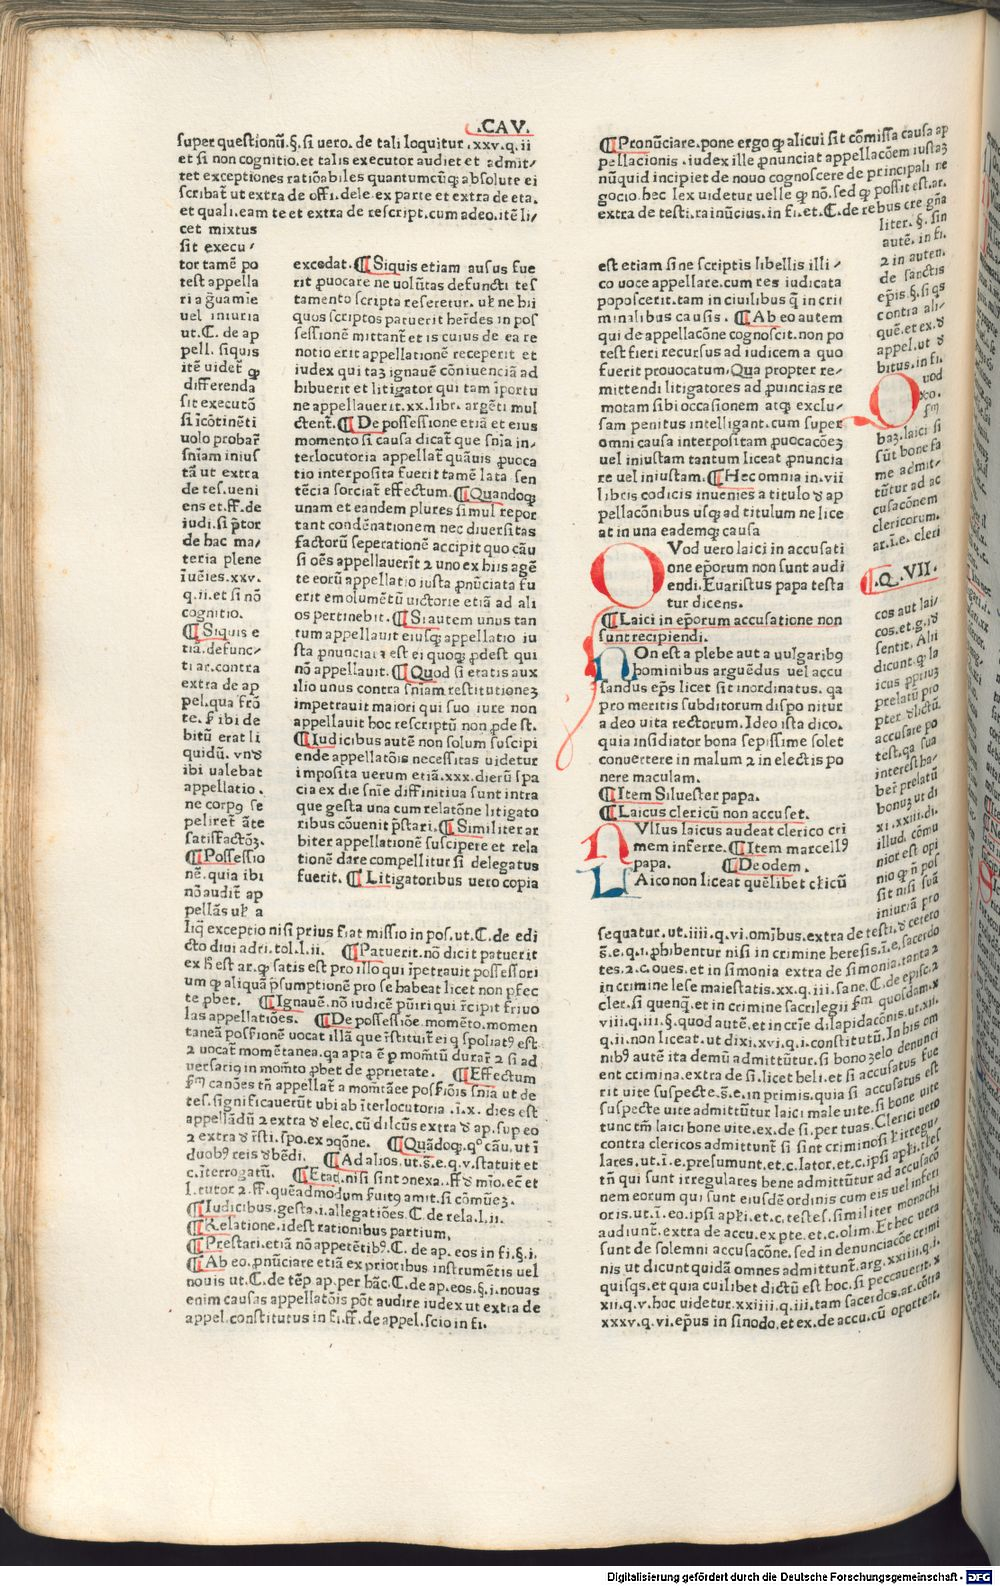 .CAV.
super questionū.§.si uero. de tali loquitur .xxv.q.ii
et si non cognitio.et talis executor audiet et admit/
tet exceptiones ratiōabiles quantumcūqꝫ absolute ei
scribat̄ ut extra de offi.dele.ex parte et extra de eta.
et quali.eam te et extra de rescript.cum adeo.itē li/
cet mixtus
sit execu/
tor tamē po
test appella
ri a
uel iniuria
ut.C. de ap
pell. siquis
itē uidet̄ ꝙ
differenda
sit executō
si īcōtinēti
uolo probar̄
sniam inius
tā ut extra
de tes.ueni
ens et.ff.de
iudi.si p̄tor
de hac ma/
teria plene
īuēies.xxv.
q.ii.et si nō
cognitio.
¶Siquis e
tiā.defunc/
ti ar.contra
extra de ap
pel.qua frō
te. ibi de
bitū erat li
quidū. vnꝺ
ibi ualebat
appellatio.
ne corpꝰ se
peliret̄ āte
satisfactōꝫ.
¶Possessio
nē.quia ibi
nō audit̄ ap
pellās a
excedat.¶Siquis etiam ausus fue
rit ꝓuocare ne uolūtas defuncti tes
tamento scripta reseretur. ne hii
quos scriptos patuerit her̄des in pos
sessionē mittant̄ et is cuius de ea re
notio erit appellationē receperit et
iudex qui taꝫ ignauē cōniuenciā ad
hibuerit et litigator qui tam īportu
ne appellauerit.xx.libr. argēti mul
ctent̄.¶De possessione etiā et eius
momento si causa dicat̄ que snia in/
terlocutoria appellat̄ quāuis ꝓuoca
tio interposita fuerit tamē lata sen
tēcia sorciat̄ effectum.¶Quandoqꝫ
unam et eandem plures simul repor
tant condēnationem nec diuersitas
factorū seperationē accipit quo cāu
si oēs appellauerit ⁊ uno ex hiis agē
te eorū appellatio iusta ꝓnūciata fu
erit emolumētū uictorie etiā ad ali
os pertinebit.¶Si autem unus tan
tum appellauit eiusqꝫ appellatio iu
sta ꝓnunciata est ei quoqꝫ ꝓdest qui
nō appellauit.¶Quod si etatis aux
ilio unus contra sniam restitutioneꝫ
impetrauit maiori qui suo iure non
appellauit hoc rescriptū non ꝓdest.
¶Iudicibus autē non solum suscipi
ende appellatōis necessitas uidetur
imposita uerum etiā.xxx.dierū spa
cia ex die snie diffinitiua sunt intra
que gesta una cum relatōne litigato
ribus cōuenit p̄stari.¶Similiter ar
biter appellationē suscipere et rela
tionē dare compellitur si delegatus
fuerit.¶Litigatoribus uero copia
liqꝫ exceptio nisi prius fiat missio in pos.ut.C.de edi
cto diui adri.tol.l.ii. ¶Patuerit.nō dicit patuerit
ex est ar.ꝙ satis est pro illo qui īpetrauit possessori
um ꝙ aliquā p̄sumptionē pro se habeat licet non ꝑfec
te ꝓbet. ¶Ignauē.nō iudicē pūiri qui r̄cipit friuo
las appellatiōes. ¶De possessiōe.momēto.momen
taneā possionē uocat illā que īstituit̄ ei ꝗ spoliatꝰ est
⁊ uocat̄ momētanea.qa apta ē ꝑ momtū durar̄ ⁊ si ad
uersariꝰ in momto ꝓbet de ꝓprietate. ¶Effectum
canōes tn̄ appellat̄ a momtāee possiōis snia ut de
tes.significauerūt ubi ab īterlocutoria .i.x. dies est
appellādū ⁊ extra ꝺ elec.cū dilcūs extra ꝺ ap.sup eo
⁊ extra ꝺ īsti.spo.ex ꝯqōne. ¶Quādoqꝫ.qͦ cāu.ut ī
duobꝰ reis ꝺ bēdi. ¶Ad alios.ut.s̄.e.q.v.statuit et
c.īterrogatū. ¶Etat̄.nisi sint ꝯnexa..ff.ꝺ mīo.ec̄ et
l.tutor ⁊.ff.quēadmodum ẜuitꝰ amit.si cōmūeꝫ.
¶Iudicibus.gesta.i.allegatiōes.C.de rela.l.ii.
¶Relatione.idest rationibus partium,
¶Prestari.etiā nō appetētibꝰ.C.de ap.eos in fi.§.i.
¶Ab eo.ꝓnūciare etiā ex prioribus instrumētis uel
nouis ut.C.de tēp ap.per hāc.C.de ap.eos.§.i.nouas
enim causas appellatōis pōt audire iudex ut extra de
appel.constitutus in fi.ff.de appel.scio in fi.
¶Pronūciare.pone ergo ꝙ alicui sit cōmissa causa ap
pellacionis .iudex ille ꝓnunciat appellacōem iustaꝫ
nūquid incipiet de nouo cognoscere de principali ne
gocio.hec lex uidetur uelle ꝙ nō.sed ꝙ possit est.ar.
extra de testi.rainūcius.in fi.et.C.de rebus cre gn̄a
liter.§. sin
autē. in fi.
⁊ in auten.
de sanctis
ep̄is.§.si qs
contra ali/
quē.et ex.ꝺ
appel.ut ꝺ
bitus.in fi.
Quod
baꝫ.laici si
sūt bone fa
me admit/
tūtur ad ac
cusacōnem
clericorum.
ar.i.e. cleri
est etiam sine scriptis libellis illi/
co uoce appellare.cum res iudicata
poposcerit.tam in ciuilibus ꝗ̄ in cri
minalibus causis. ¶Ab eo autem
qui de appellacōne cognoscit.non po
test fieri recursus ad iudicem a quo
fuerit prouocatum.Qua propter re/
mittendi litigatores ad ꝓuincias re
motam sibi occasionem atqꝫ exclu/
sam penitus intelligant.cum super
omni causa interpositam ꝓuocacōeꝫ
uel iniustam tantum liceat ꝓnuncia
re uel iniustam.¶Hec omnia in.vii
libris codicis inuenies a titulo ꝺ ap
pellacōnibus usqꝫ ad titulum ne lice
at in una eademqꝫ causa
QVod uero laici in accusati
one ep̄orum non sunt audi
endi.Euaristus papa testa
tur dicens.
.Q.VII.
¶Laici in ep̄orum accusatione non
sunt recipiendi.
NOn est a plebe aut a uulgaribꝰ
hominibus arguēdus uel accu
sandus ep̄s licet sit inordinatus. qa
pro meritis subditorum dispo nitur
a deo uita rectorum.Ideo ista dico.
quia insidiator bona sepissime solet
conuertere in malum ⁊ in electis po
nere maculam.
¶Item Siluester papa.
¶Laicus clericū non accuset.
NVllus laicus audeat clerico cri
mem inferre.¶Item marcellꝰ
papa. ¶De odem.
LAico non liceat quēlibet clicū
cos aut lai/
cos.et.g.iꝺ
sentit. Alii
dicunt.ꝙ la
icus ꝓpriuꝫ
prelatū pro
pter ꝺlictū.
accusare po
test.qa sua
interest ha/
ber̄ prelatū
bonuꝫ ut di
xi.xxiii.di.
illud. cōmu
nior est opi
nio ꝙ n̄ pos
sit nisi suā
iniuriā pro
sequatur.ut.iiii.q.vi.omībus.extra de testi.ꝺ cetero
s̄.e.q.i.ꝓhibentur nisi in crimine heresis.ī.e.sacerdo
tes.⁊.c.oues.et in simonia extra de simonia.tanta ⁊
in crimine lese maiestatis.xx.q.iii.sane.C.de episc.⁊
cler.si quenqꝫ.et in crimine sacrilegii quosdam.x
viii.q.iii.§.quod autē.et in crīe dilapidacōnis.ut.xii.
q.ii.non liceat.ut dixi.xvi.q.i.constitutū.In his om
nibꝰ autē ita demū admittūtur.si bono zelo denunci
ent crimina.extra de si.licet heli.et si accusatus fue
rit uite suspecte.s̄.e.in primis.quia si accusatus est
suspecte uite admittūtur laici male uite.si bone uite
tunc tm̄ laici bone uite.ex.de si.per tuas.Clerici uero
contra clericos admittunt̄ si sint criminosi irregu/
lares.ut.ī.e.presumunt.et.c.lator.et.c.ipsi ap̄li.ales
tn̄ qui sunt irregulares bene admittūtur ad accusacō
nem eorum qui sunt eiusdē ordinis cum eis uel inferi
oris.ut.ī.eo.ipsi ap̄li.et.c.testes.similiter monachi
audiunt̄.extra de accu.ex pte.et.c.olim.Et hec uera
sunt de solemni accusacōne.sed in denunciacōe crimi
nis ut dicunt quidā omnes admittunt̄.arg.xxiiii.q.i.
quisqs.et quia cuilibet dictū est hoc.si peccauerit.x
xii.q.v.hoc uidetur.xxiiii.q.iii.tam sacerdos.ar.cōtra
xxxv.q.vi.ep̄us in sinodo.et.ex.de accu.cū oporteat.
Digitalisierung gefördert durch die Deutsche Forschungsgemeinschaft - DFG